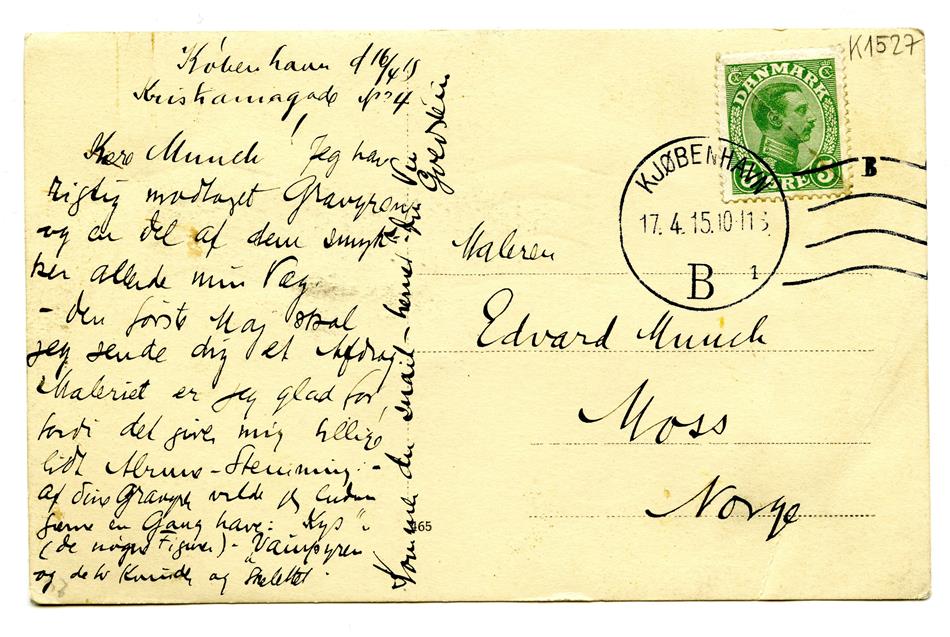 København d 16/4 15
Kristianiagade No 4
Kære Munch! Jeg har
rigtig modtaget Gravyren
og en del af dem smyk-
ker allerede min Væg
- den første Maj skal
jeg sende dig et Afdrag
Maleriet er jeg glad for
fordi det giver mig tillige
lidt Stemning -
af dine vilde jeg
gerne en Gang have: "Kys"
(de nøgne Figurer) - Vampyren
og og Skelettet.
Kommer du snart herned - din Ven
K1527
DANMARK
ØRE 5
KJØBENHAVN
17. 4. 15. 10-11
B
1
B
Maleren
Edvard Munch
Moss
Norge